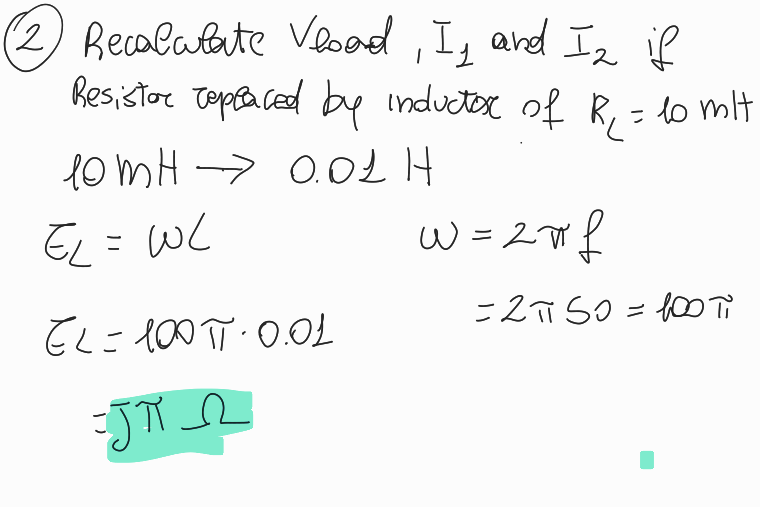 2 Recalculate Vload, I1 and I2 if
Resistor replaced by inductor of RL = 10 mH
10 mH → 0.01 H
ZL = ωL
ω = 2πf
= 2π50 = 100π
ZL = 100π · 0.01
= Jπ Ω